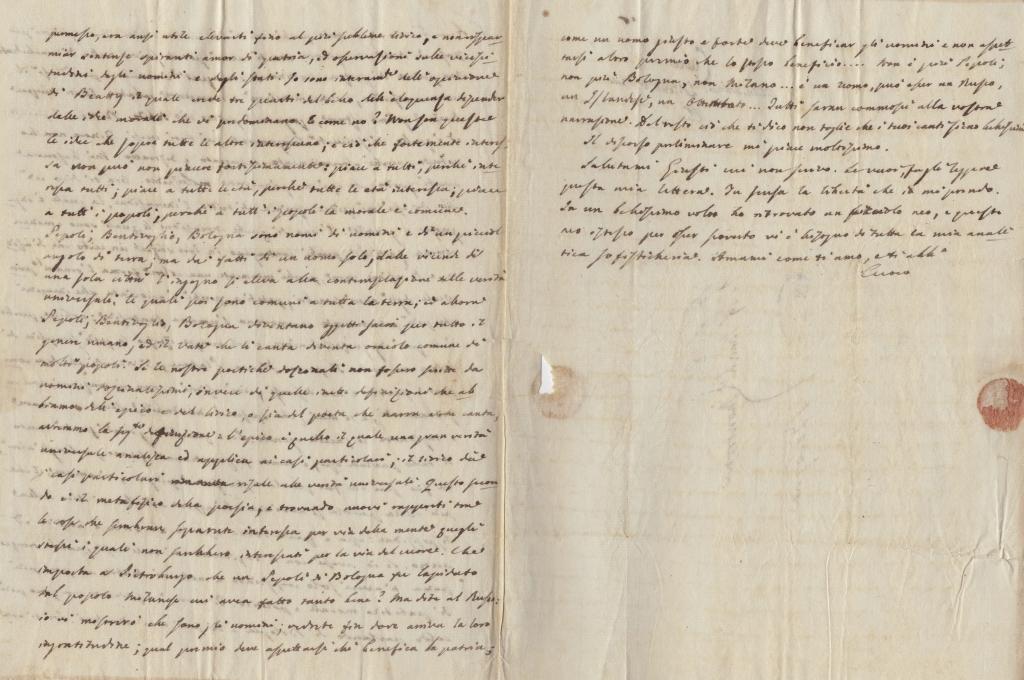 permesso, era anzi utile elevarti fino al più sublime lirico, e non rispar
miar sentenze spiranti amor di patria, ed osservazioni sulle vicissi
tudini degli uomini e degli stati. Io sono interam.e dell'opinione
di Beatty il quale crede tre quarti del bello dell'eloquenza dipender
dalle idee morali che vi predominano. E come no? Non son queste
le idee che sopra tutte le altre interessano; e ciò che fortemente interes
sa non può non piacere fortissimamente: piace a tutti, perché inte
ressa tutti; piace a tutte le età, perché tutte le età interessa; piace
a tutt'i popoli, perché a tutt'i popoli la morale è comune.
Pepoli, Bentivoglio, Bologna sono nomi di uomini e di un piccol
angolo di terra; ma dai fatti di un uomo solo, dalle vicende di
una sola città l'ingegno si eleva alla contemplazione delle verità
universali; le quali poi sono comuni a tutta la terra; ed allora
Pepoli, Bentivoglio, Bologna diventano oggetti sacri per tutto il
genere umano, ed il vate che li canta diventa oracolo comune di
molti popoli. Se le nostre poetiche dozzinali non fossero scritte da
uomini dozzinalissimi, invece di quelle inette definizioni che ab
biamo dell'epico e del lirico, o sia del poeta che narra e che canta,
avremmo la seg.te definizione: l'epico è quello il quale una gran verità
universale analizza ed applica ai casi particolari; il lirico dai
casi particolari risale alle verità universali. Questo secon
do è il metafisico della poesia, e trovando nuovi rapporti tra
le cose che sembrano separate interessa per via della mente quegli
stessi i quali non sarebbero interessati per la via del cuore. Che
importa a Pietroburgo che un Pepoli di Bologna fu lapidato
dal popolo milanese cui avea fatto tanto bene? Ma dite al Russo:
io vi mostrerò che sono gli uomini; vedrete fin dove arriva la loro
ingratitudine; qual premio deve aspettarsi chi benefica la patria;
come un uomo giusto e forte deve beneficar gli uomini e non aspet
tarsi altro premio che lo stesso beneficio.... Non è più Pepoli;
non più Bologna, non Milano... è un uomo, può esser un Russo,
un Islandese, un ... Tutti saran commossi alla vostra
narrazione. Del resto ciò che ti dico non toglie che i tuoi canti sieno bellissimi
Il discorso preliminare mi piace moltissimo.
Salutami Giusti cui non scrivo. Se vuoi, fagli leggere
questa mia lettera. Tu scusa la libertà che io mi prendo.
In un bellissimo volto ho ritrovato un piccolo neo, e questo
neo istesso per esser scoverto vi è bisogno di tutta la mia anali
tica sofisticheria. Amami come ti amo, e ti abb.o
Cuoco